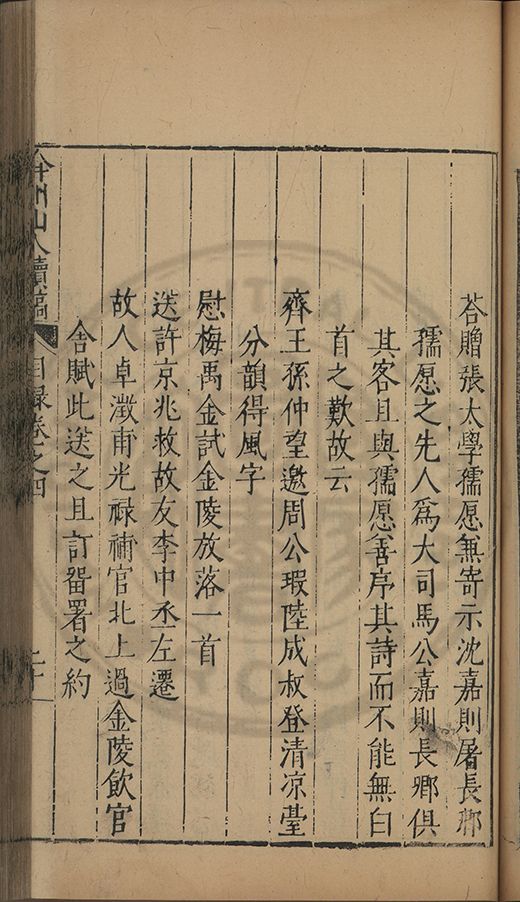 荅贈張太學孺愿兼寄示沈嘉則屠長卿
孺愿之先人爲大司馬公嘉則長卿俱
其客且與孺愿善序其詩而不能無白
首之歎故云
齊王孫仲望邀周公瑕陸成叔登清凉臺
分韻得風字
慰梅禹金試金陵放落一首
送許京兆救故友李中丞左遷
故人卓澂甫光禄補官北上過金陵飲官
舍賦此送之且訂畱署之約
山人續稿
目録卷之四